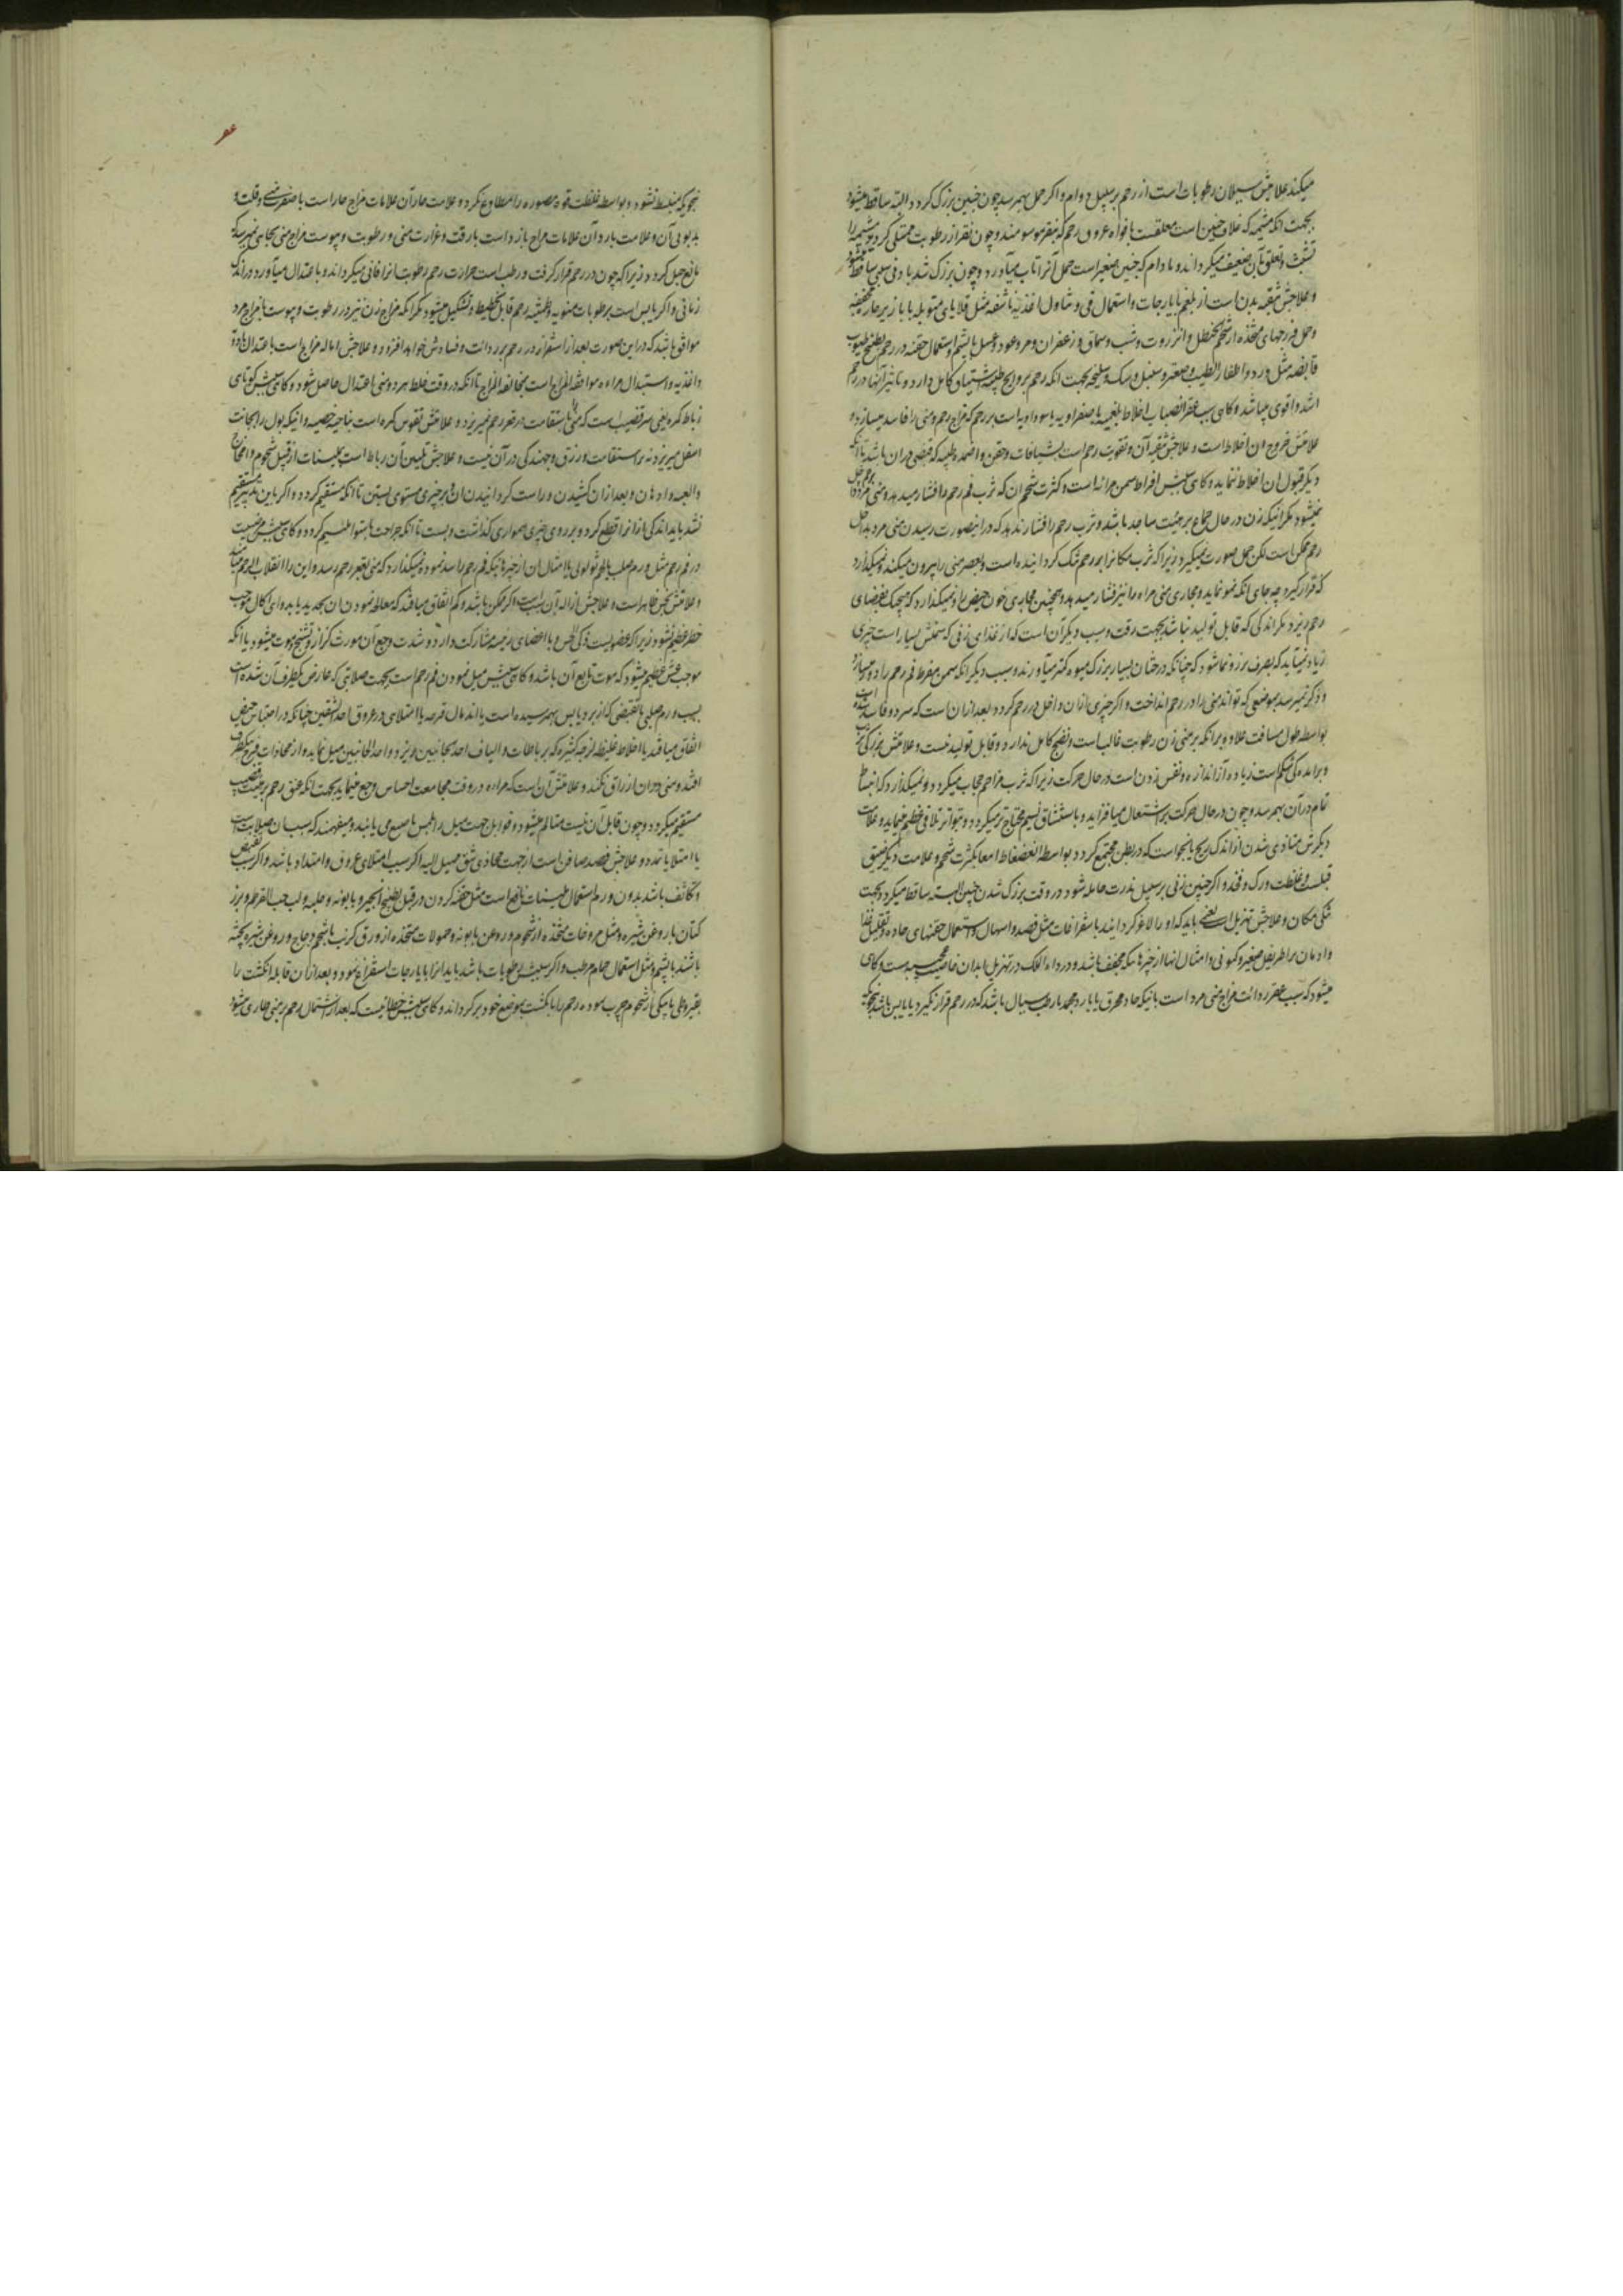 میکند علامتش سیلان رطوبات است از رحم بر سبیل دوام و اگر حمل بهم رسد چون جنین بزرگ گردد البته ساقط میشود
بجهت انکه مشیمه که غلاف جنین است معلقست بافواه عروق رحم که بنقر موسومند و چون نقر از رطوبت ممتلی گردد مشیمه را
تشبث و تعلق بآن ضعیف میگرداند و مادام که جنین صغیر است حمل آنرا تاب میآورد و چون بزرگ شد بادنی سببی ساقط میشود
و علاجش تنقیه بدن است از بلغم بایارجات و استعمال قی و تناول اغذیه ناشفه مثل قلایای متوبله بابازیر حاره مجففه
و حمل فرزجهای متخذه از شحم حنظل و انزروت و شب و سماق و زعفران و مر و عود و عسل با پشم و استعمال حقنه در رحم بطبیخ طیوب
قابضه مثل ورد و اظفار الطیب و صعتر و سنبل و سک و سلیخه بجهت انکه رحم بروایح طیبه اشتیاق کامل دارد و تاثیر انها در رحم
اشد و اقوی میباشد و کاهی سبب عقر انصباب اخلاط بلغمیه یا صفراویه یا سوداویه است بر رحم که مزاج رحم و منی را فاسد میسازد و
علامتش خروج ان اخلاط است و علاجش تنقیه آن و تقویت رحم است بشیافات و حقن و اضمده طیبه که قبضی در ان باشد تا انکه
دیگر قبول ان اخلاط ننماید و کاهی سببش افراط سمن مراه است و کثرت شحم ان که ثرب فم رحم را فشار میدهد و منی مرد داخل
نمیشود مگر انیکه زن در حال جماع بر هیئت ساجد باشد و ثرب رحم را فشار ندهد که در اینصورت رسیدن منی مرد بداخل
رحم ممکن است لکن حمل صورت نمیگیرد زیرا که ثرب مکانرا بر رحم تنگ گردانیده است و بعصر منی را بیرون میکند و نمیگذارد
که قرار گیرد چه جای انکه نمو نماید و مجاری منی مراه را نیز فشار میدهد و همچنین مجاری خون حیض را و نمیگذارد که هیچیک بفضای
رحم ریزد مگر اندکی که قابل تولید نباشد بجهت رقت و سبب دیگر آن است که از غذای زنی که سمنش بسیار است چیزی
زیاد نمیآید که بصرف بزر و نما شود که چنانکه درختان بسیار بزرگ میوه کمتر میآورند و سبب دیگر انکه سمن مفرط فم رحم را دور میسازد
و ذکر نمیرسد بموضعی که تواند منی را در رحم انداخت و اگر چیزی از ان داخل در رحم گردد بعد از ان است که سرد و فاسد شده است
بواسطه طول مسافت علاوه بر انکه بر منی زن رطوبت غالب است و نضج کامل ندارد و قابل تولید نیست و علامتش بزرگی
و برامدگی شکم است زیاده از اندازه و نفس زدن است در حال حرکت زیرا که ثرب مزاحم حجاب میگردد و نمیگذارد که انبساط
تام در آن بهم رسد و چون در حال حرکت بر اشتعال میافزاید و باستنشاق نسیم محتاج تر میگردد و بتواتر تلافی عظیم مینماید و علامت
دیگرش متاذی شدن از اندک ریح یا نجو است که در بطن مجتمع گردد بواسطه انضغاط امعا بکثرت شحم و علامت دیگر ضیق
قبلست و غلظت ورک و فخذ و اگر چنین زنی بر سبیل ندرت حامله شود در وقت بزرگ شدن جنین البته ساقط میگردد بجهت
تنگی مکان و علاجش تهزیل است یعنی باید که او را لاغر گردانند باستفراغات مثل فصد و اسهال و استعمال حقنهای حاده و تقلیل غذا
و ادمان بر اطریفل صغیر و کمونی و امثال انها از چیزهائیکه مجفف باشد و دواء اللک در تهزیل ابدان خاصیت عجیبست و کاهی
میشود که سبب عقر ردائت مزاج منی مرد است بانیکه حاد و محرق یا بارد مجمد یا رطب سیال باشد که در رحم قرار نگیرد یا یابس باشد بنحویکه
نحویکه منبسط نشود و بواسطه غلظت قوه مصوره را مطاوع نگردد و علامت حار آن علامات مزاج حار است با صفرت منی و قلت و
بدبوئی آن و علامت بارد آن علامات مزاج بارد است با رقت و غزارت منی و رطوبت و یبوست مزاج منی بجائی نمیرسد که
مانع حبل گردد زیرا که چون در رحم قرار گرفت و رطب است حرارت رحم رطوبت انرا فانی میگرداند و باعتدال میآورد در اندک
زمانی و اگر یابس است برطوبات منویه و طمثیه رحم قابل تخطیط و تشکیل میشود مگر انکه مزاج زن نیز در رطوبت و یبوست با مزاج مرد
موافق باشد که در این صورت بعد از استقرار در رحم بر ردائت و فسادش خواهد افزود و علاجش اماله مزاج است باعتدال بادویه
و اغذیه و استبدال مراه موافقة المزاج است بمخالفة المزاج تا انکه در وقت خلط هر دو منی اعتدال حاصل شود و کاهی سببش کوتاهی
رباط کمره یعنی سر قضیب است که منی باستقامت در قعر رحم نمیریزد و علامتش تقوس کمره است بناحیه خصیه و انیکه بول را بجانب
اسفل میریزد نه بر استقامت و زرق و جهندگی در آن نیست و علاجش تلیین آن رباط است بملینات از قبیل شحوم و امخاخ
و العبه و ادهان و بعد از ان کشیدن و راست گردانیدن ان و بر چیزی مستوی بستن تا انکه مستقیم گردد و اگر باین تدبیر مستقیم
نشد باید اندکی از انرا قطع کرد و بر روی چیزی همواری گذاشت و بست تا انکه جراحت باستوا ملتئم گردد و کاهی سببش مرضیست
در فم رحم مثل ورم صلب یا لحم ثولولی یا امثال ان از چیزهائیکه فم رحم را سد نموده نمیگذارد که منی بقعر رحم رسد و این را انقلاب الرحم مینامند
و علامتش بحس ظاهر است و علاجش ازاله آن سبب است اگر ممکن باشد و کم اتفاق میافتد که معالجه نمودن ان بحدید یا بدوای اکال موجب
خطر عظیم نشود زیرا که عضویست ذکی الحس و با اعضای رئیسه مشارکت دارد و شدت وجع آن مورث کزاز و تشنج و موت میشود یا انکه
موجب غشی عظیم میشود که موت تابع آن باشد و کاهی سببش میل نمودن فم رحم است بجهت صلابتی که عارض یکطرف آن شده است
بسبب ورم صلبی یا تقبضی که از برد یا یبس بهمرسیده است یا اندمال قرحه یا امتلای در عروق احد الشقین چنانکه در احتباس حیض
اتفاق میافتد یا اخلاط غلیظه لزجه کثیره که بر رباطات و الیاف احد الجانبین ریزد و احد الجانبین میل نماید و از محاذات فرج بیکطرف
افتد و منی در ان ازراق نکند و علامتش آن است که مراه در وقت مجامعت احساس وجع مینماید بجهت انکه عنق رحم بر هیئت قضیب
مستقیم میگردد و چون قابل آن نیست متالم میشود و قوابل جهت میل را بلمس باصبع می یابند و میفهمند که سبب ان صلابت است
یا امتلا یا تمدد و علاجش فصد صافن است از جهت محاذی شق ممیل الیه اگر سبب امتلای عروق و امتداد باشد و اگر سبب تقبض
و تکاثف باشد بدون ورم استعمال ملینات نافع است مثل حقنه کردن در قبل بطبیخ انجیر و بابونه و حلبه و لب حب القرطم و بزر
کتان با روغن شیره و مثل مروخات متخذه از شحوم و روغن بابونه و حمولات متخذه از ورق کرنب با شحم دجاج و روغن شیرپخته
باشند با پشم و مثل استعمال حمام مرطب و اگر سببش رطوبات باشد باید انرا بایارجات استفراغ نمود و بعد از ان قابله انگشت را
بقیروطی یا بیکی از شحوم چرب نموده رحم را با انگشت بموضع خود برگرداند و کاهی سببش خطائیست که بعد از اشتمال رحم بر منی صادر میشود